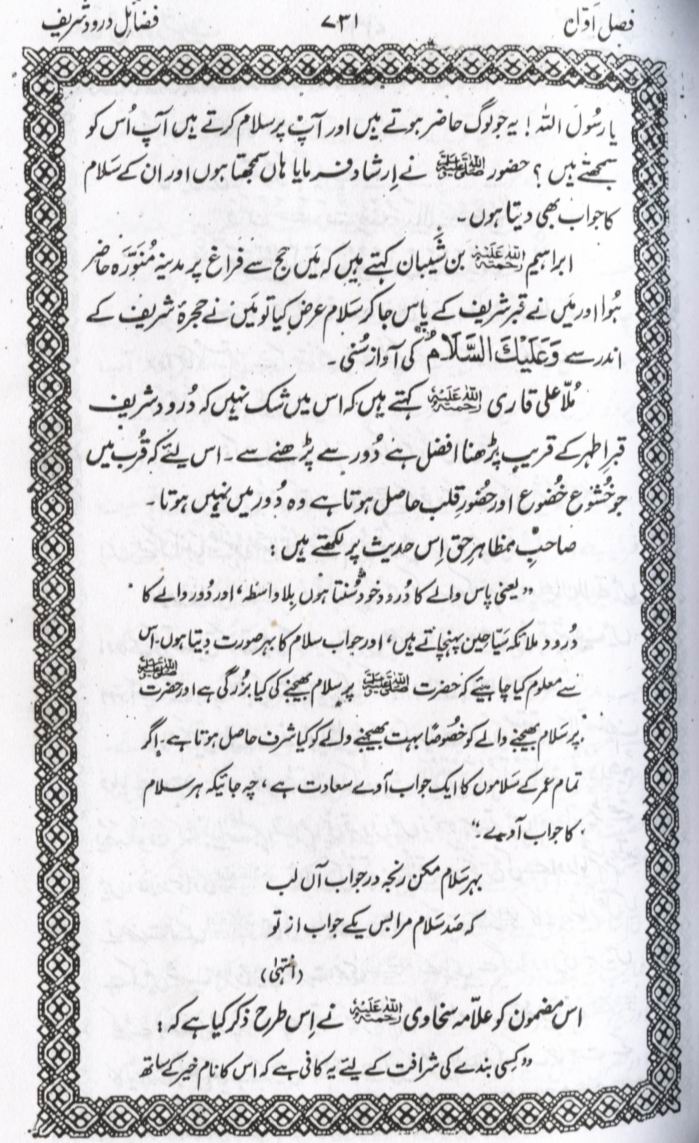 فصلِ اوّل ۷۳۱ فضائلِ درود شریف
یا رسُولَ اللہ! یہ جو لوگ حاضر ہوتے ہیں اور آپؐ پر سلام کرتے ہیں آپ اُس کو
سمجھتے ہیں؟ حضور ﷺ نے ارشاد فرمایا ہاں سمجھتا ہوں اور ان کے سَلام
کا جواب بھی دیتا ہوں۔
ابراہیم رحمۃ اللہ علیہ بن شَیْبان کہتے ہیں کہ مَیں حج سے فراغ پر مدینہ مُنَوَّرَہ حاضر
ہُوا اور مَیں نے قبر شریف کے پاس جا کر سلام عرض کیا تو مَیں نے حجرۂ شریف کے
اندر سے وَعَلَیْكَ السَّلَامُ کی آواز سُنی۔
مُلّا علی قاری رحمۃ اللہ علیہ کہتے ہیں کہ اس میں شک نہیں کہ دُرود شریف
قبرِ اطہر کے قریب پڑھنا افضل ہے دُور سے پڑھنے سے۔ اس لئے کہ قُرب میں
جو خُشوع خُضوع اور حُضورِ قلب حاصل ہوتا ہے وہ دُور میں نہیں ہوتا۔
صاحبِ مظاہرِ حق اِس حدیث پر لکھتے ہیں:
”یعنی پاس والے کا دُرود خود سُنتا ہوں بلا واسطہ، اور دُور والے کا
دُرود ملائکہ سَیّاحین پہنچاتے ہیں، اور جواب سلام کا بہر صورت دیتا ہوں، اس
سے معلوم کیا چاہیئے کہ حضرت ﷺ پر سلام بھیجنے کی کیا بزرگی ہے اور حضرت ﷺ
پر سَلام بھیجنے والے کو خصُوصًا بہت بھیجنے والے کو کیا شرف حاصل ہوتا ہے۔ اگر
تمام عُمر کے سَلاموں کا ایک جواب آوے سعادت ہے، چہ جائیکہ ہر سلام
کا جواب آوے:“
بہر سَلام مکن رنجہ در جواب آں لب
کہ صَد سَلام مرا بس یکے جواب از تو
(انتہیٰ)
اس مضمون کو علّامہ سخاوی رحمۃ اللہ علیہ نے اِس طرح ذکر کیا ہے کہ:
”کسی بندے کی شرافت کے لیئے یہ کافی ہے کہ اس کا نام خیر کے ساتھ